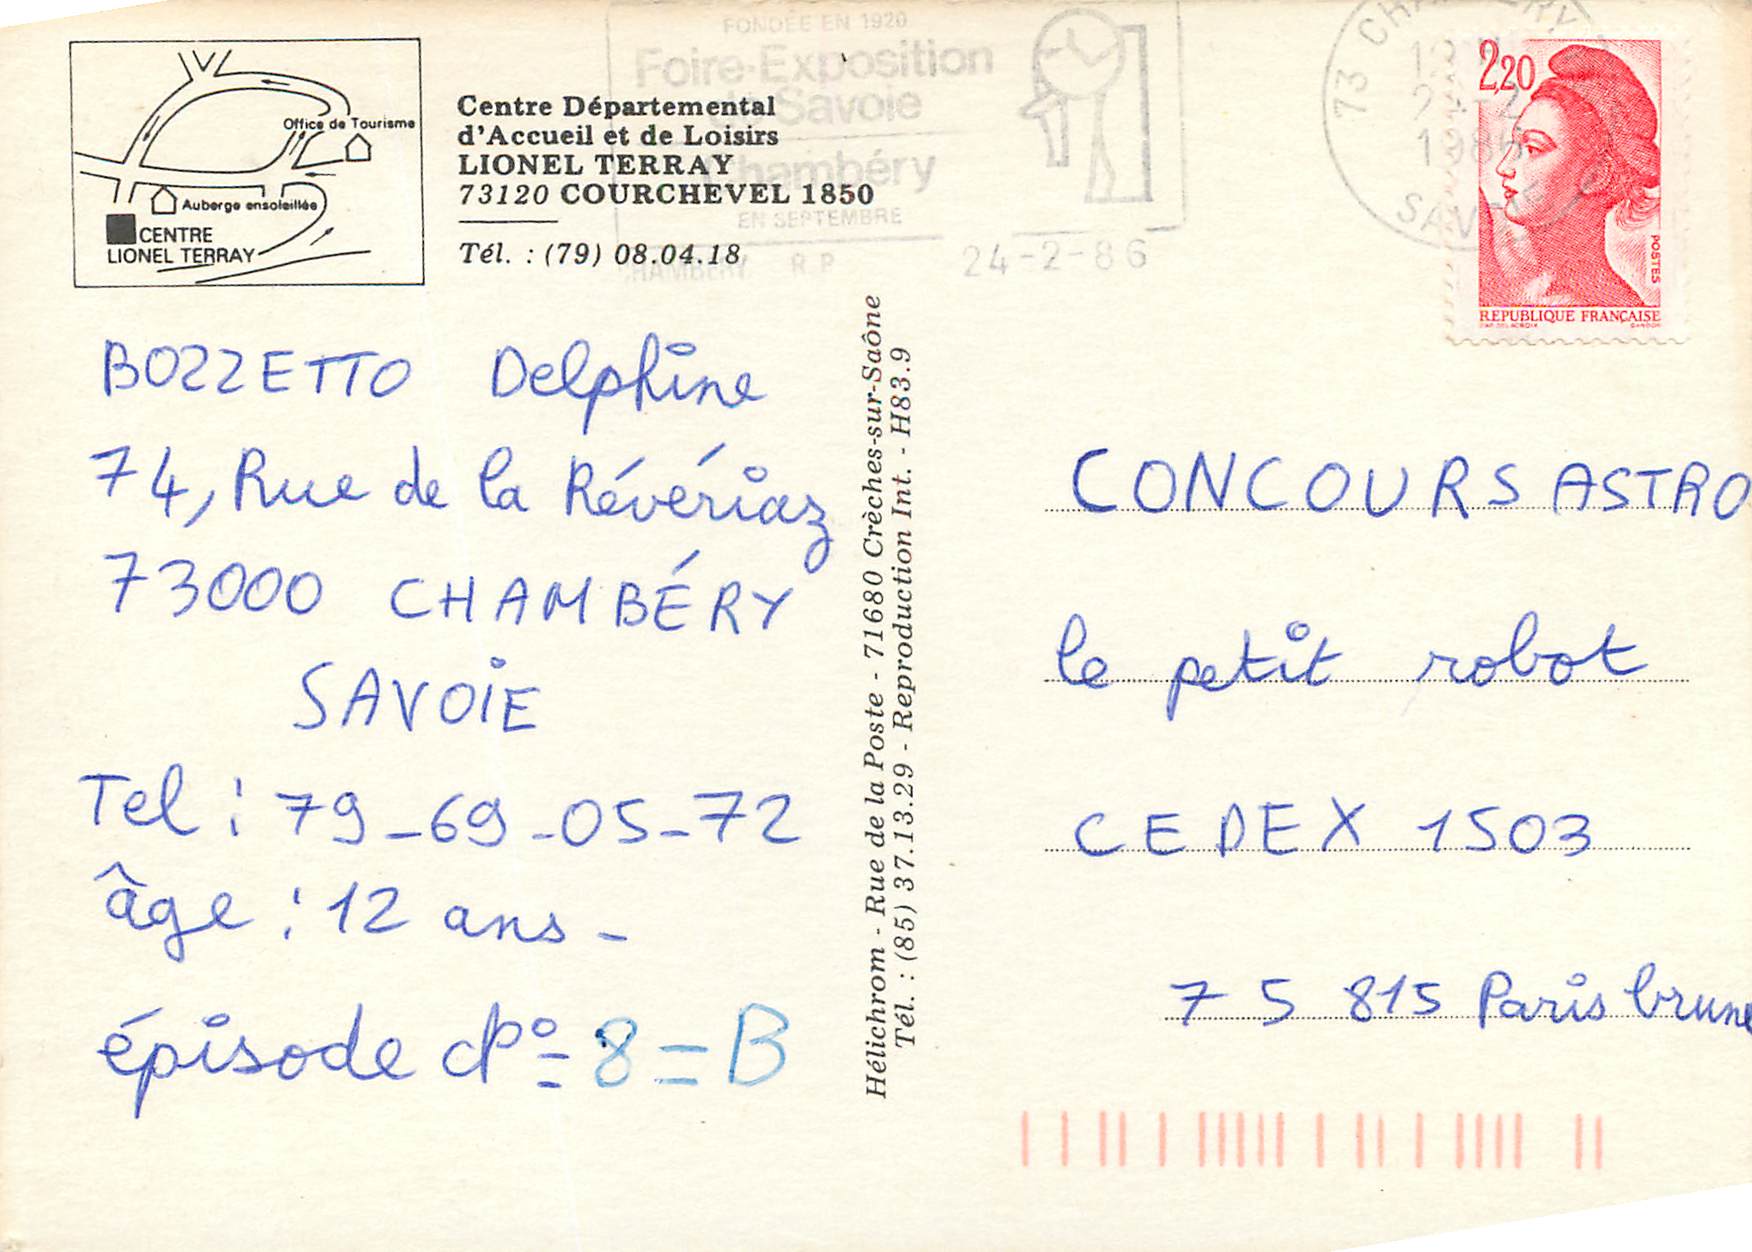 Office de Tourisme
Auberge ensoleillée
CENTRE
LIONEL TERRAY
Centre Départemental
d'Accueil et de Loisirs
LIONEL TERRAY
73120 COURCHEVEL 1850
Tél. : (79) 08.04.18
FONDÉE EN 1920
Foire-Exposition
de Savoie
Chambéry
EN SEPTEMBRE
CHAMBERY R.P 24-2-86
73 CHAMBERY
1986
SAVOIE
2,20
POSTES
REPUBLIQUE FRANÇAISE
BOZZETTO Delphine
74, Rue de la Révériaz
73000 CHAMBÉRY
SAVOIE
Tel : 79-69-05-72
âge : 12 ans -
épisode N° 8 = B
Hélichrom - Rue de la Poste - 71680 Crèches-sur-Saône
Tél. : (85) 37.13.29 - Reproduction Int. - H83.9
CONCOURS ASTRO
le petit robot
CEDEX 1503
75 815 Paris brune